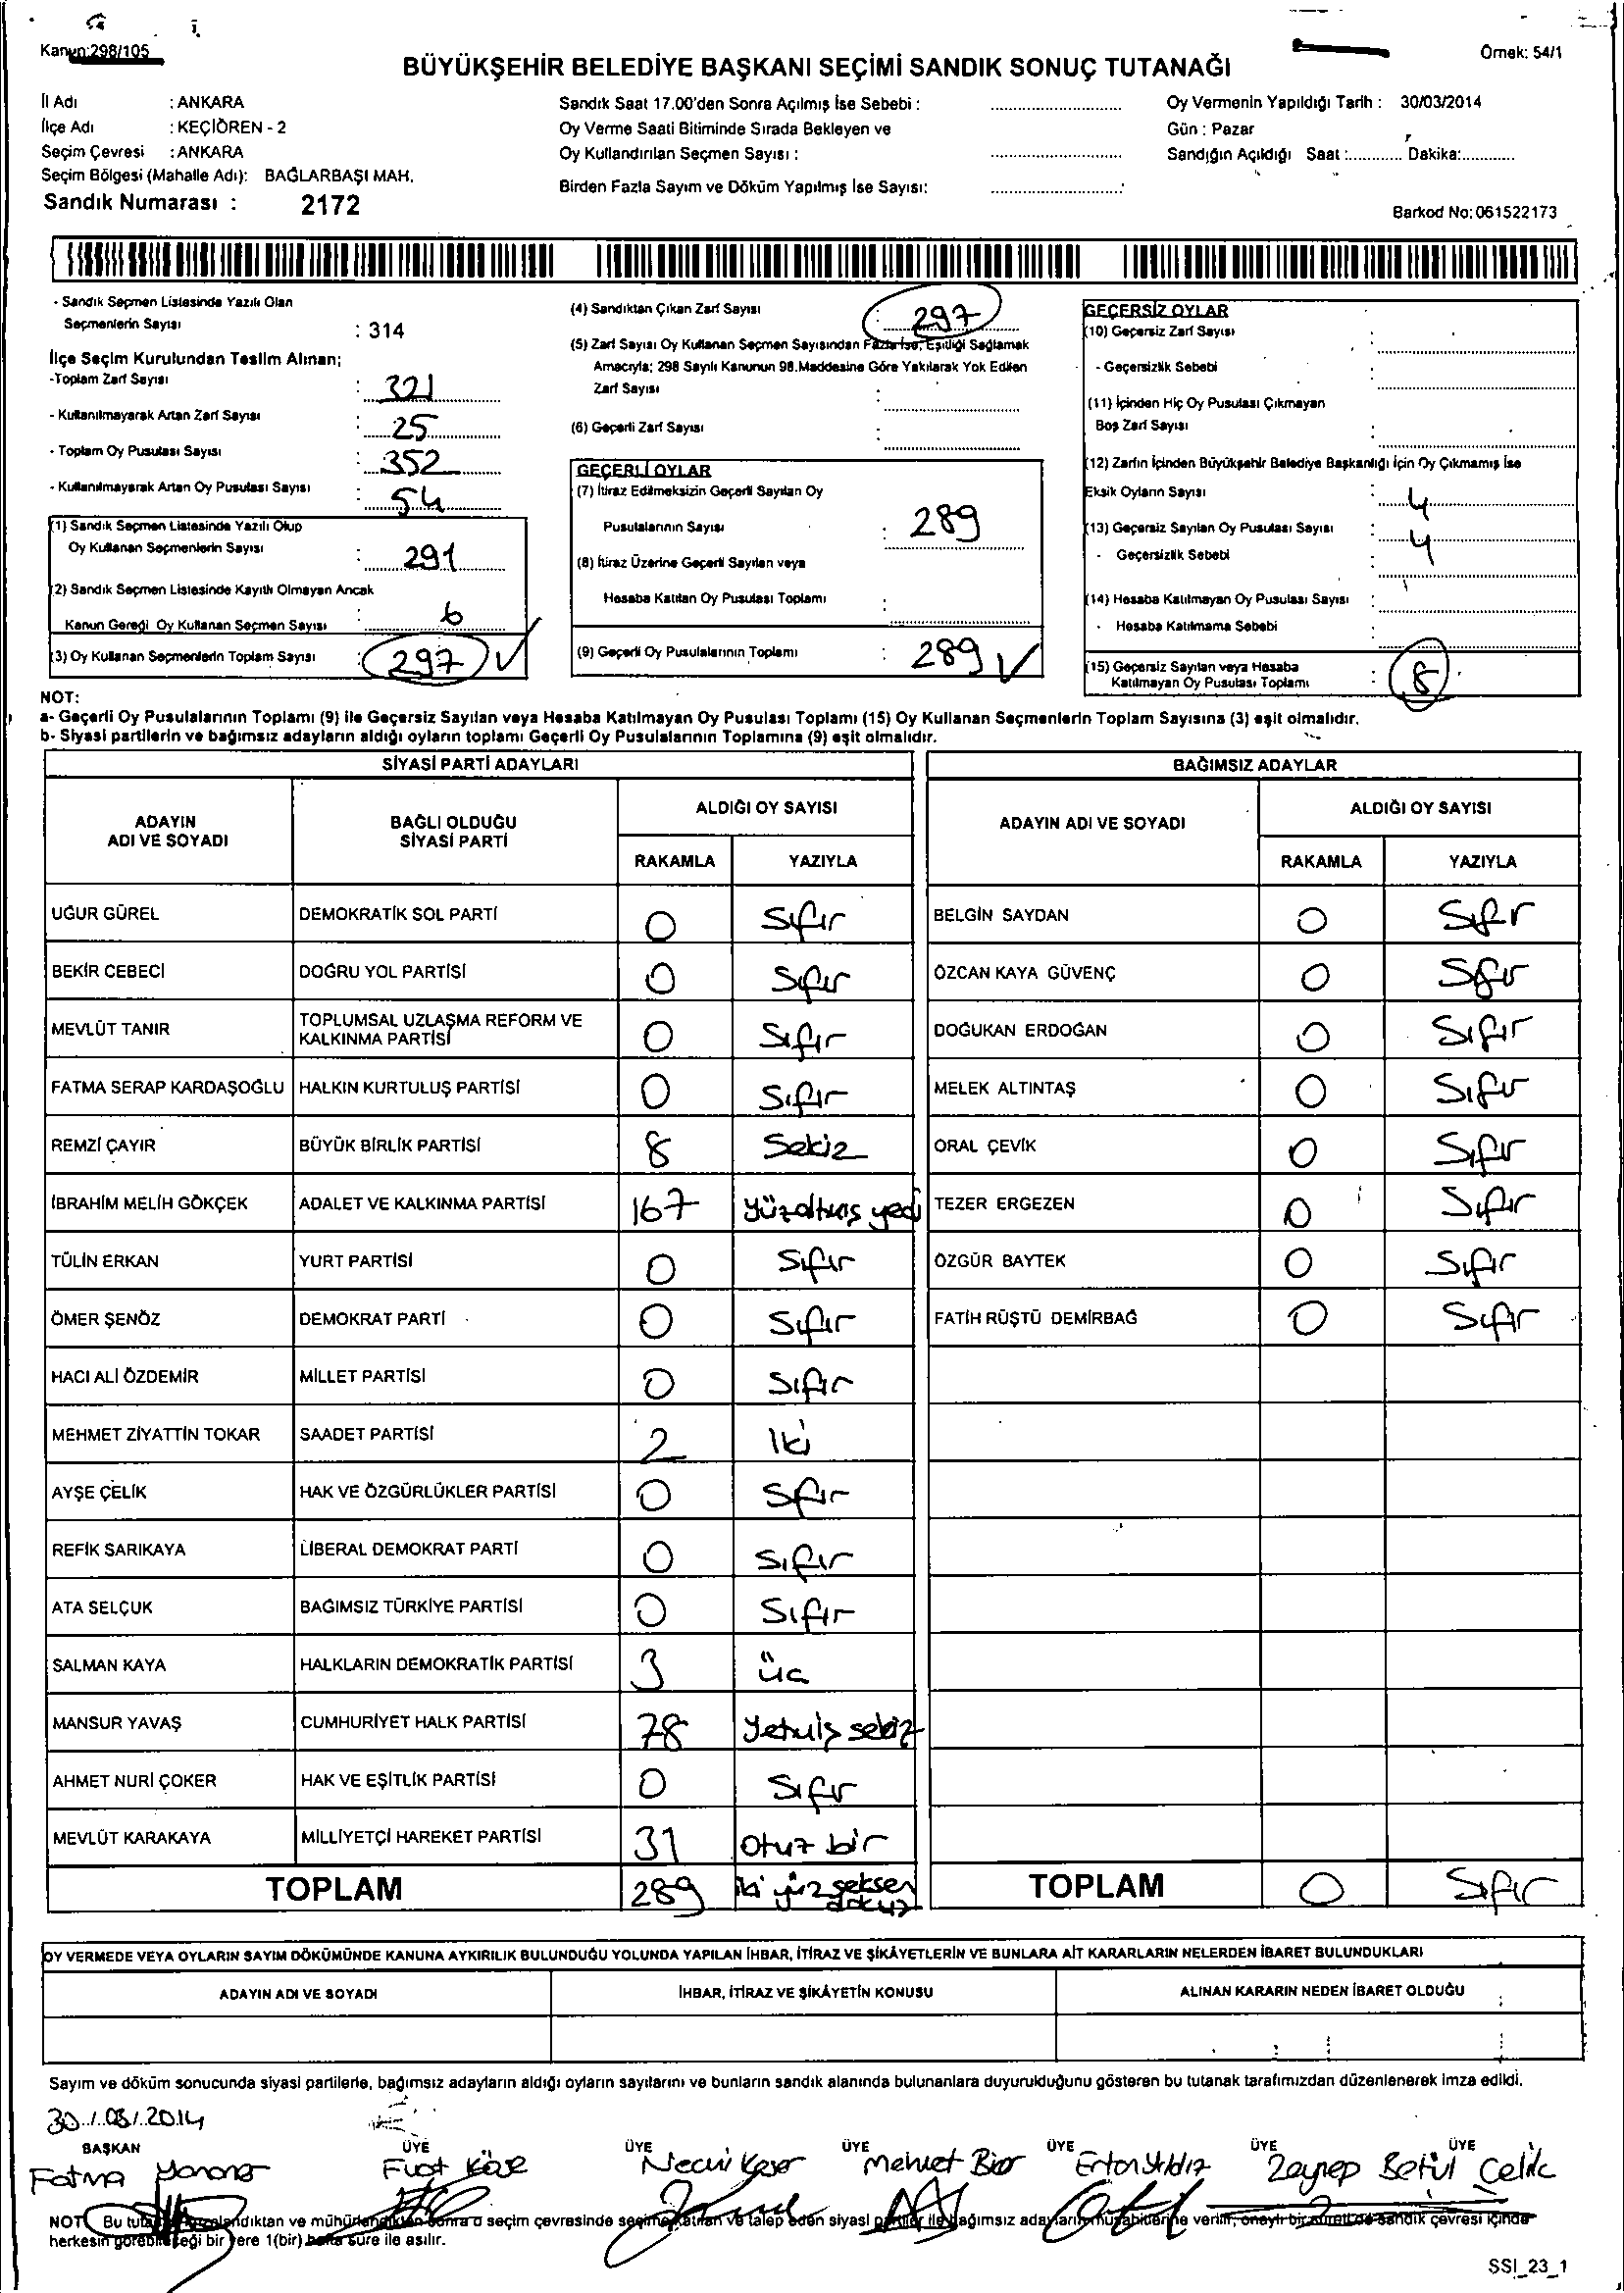 Kanun:298/105
Örnek: 54/1
BÜYÜKŞEHİR BELEDİYE BAŞKANI SEÇİMİ SANDIK SONUÇ TUTANAĞI
İl Adı : ANKARA
İlçe Adı : KEÇİÖREN - 2
Seçim Çevresi : ANKARA
Seçim Bölgesi (Mahalle Adı): BAĞLARBAŞI MAH.
Sandık Numarası : 2172
Sandık Saat 17.00'den Sonra Açılmış İse Sebebi :
Oy Verme Saati Bitiminde Sırada Bekleyen ve
Oy Kullandırılan Seçmen Sayısı :
Birden Fazla Sayım ve Döküm Yapılmış İse Sayısı:
Oy Vermenin Yapıldığı Tarih : 30/03/2014
Gün : Pazar
Sandığın Açıldığı Saat :............ Dakika:............
Barkod No: 061522173
- Sandık Seçmen Listesinde Yazılı Olan
Seçmenlerin Sayısı : 314
İlçe Seçim Kurulundan Teslim Alınan;
-Toplam Zarf Sayısı : 321
- Kullanılmayarak Artan Zarf Sayısı : 25
- Toplam Oy Pusulası Sayısı : 352
- Kullanılmayarak Artan Oy Pusulası Sayısı : 54
(1) Sandık Seçmen Listesinde Yazılı Olup
Oy Kullanan Seçmenlerin Sayısı : 291
(2) Sandık Seçmen Listesinde Kayıtlı Olmayan Ancak
Kanun Gereği Oy Kullanan Seçmen Sayısı : 6
(3) Oy Kullanan Seçmenlerin Toplam Sayısı : 297
(4) Sandıktan Çıkan Zarf Sayısı : 297
(5) Zarf Sayısı Oy Kullanan Seçmen Sayısından Fazla İse, Eşitliği Sağlamak
Amacıyla; 298 Sayılı Kanunun 98.Maddesine Göre Yakılarak Yok Edilen
Zarf Sayısı :
(6) Geçerli Zarf Sayısı :
GEÇERLİ OYLAR
(7) İtiraz Edilmeksizin Geçerli Sayılan Oy
Pusulalarının Sayısı : 289
(8) İtiraz Üzerine Geçerli Sayılan veya
Hesaba Katılan Oy Pusulası Toplamı :
(9) Geçerli Oy Pusulalarının Toplamı : 289
GEÇERSİZ OYLAR
(10) Geçersiz Zarf Sayısı :
- Geçersizlik Sebebi :
(11) İçinden Hiç Oy Pusulası Çıkmayan
Boş Zarf Sayısı :
(12) Zarfın İçinden Büyükşehir Belediye Başkanlığı İçin Oy Çıkmamış İse
Eksik Oyların Sayısı : 4
(13) Geçersiz Sayılan Oy Pusulası Sayısı : 4
- Geçersizlik Sebebi :
(14) Hesaba Katılmayan Oy Pusulası Sayısı :
- Hesaba Katılmama Sebebi :
(15) Geçersiz Sayılan veya Hesaba
Katılmayan Oy Pusulası Toplamı : 8
NOT:
a- Geçerli Oy Pusulalarının Toplamı (9) ile Geçersiz Sayılan veya Hesaba Katılmayan Oy Pusulası Toplamı (15) Oy Kullanan Seçmenlerin Toplam Sayısına (3) eşit olmalıdır.
b- Siyasi partilerin ve bağımsız adayların aldığı oyların toplamı Geçerli Oy Pusulalarının Toplamına (9) eşit olmalıdır.
SİYASİ PARTİ ADAYLARI
ADAYIN ADI VE SOYADI BAĞLI OLDUĞU SİYASİ PARTİ ALDIĞI OY SAYISI
RAKAMLA YAZIYLA
UĞUR GÜREL DEMOKRATİK SOL PARTİ 0 Sıfır
BEKİR CEBECİ DOĞRU YOL PARTİSİ 0 Sıfır
MEVLÜT TANIR TOPLUMSAL UZLAŞMA REFORM VE KALKINMA PARTİSİ 0 Sıfır
FATMA SERAP KARDAŞOĞLU HALKIN KURTULUŞ PARTİSİ 0 Sıfır
REMZİ ÇAYIR BÜYÜK BİRLİK PARTİSİ 8 Sekiz
İBRAHİM MELİH GÖKÇEK ADALET VE KALKINMA PARTİSİ 167 yüzaltmış yedi
TÜLİN ERKAN YURT PARTİSİ 0 Sıfır
ÖMER ŞENÖZ DEMOKRAT PARTİ 0 Sıfır
HACI ALİ ÖZDEMİR MİLLET PARTİSİ 0 Sıfır
MEHMET ZİYATTİN TOKAR SAADET PARTİSİ 2 İki
AYŞE ÇELİK HAK VE ÖZGÜRLÜKLER PARTİSİ 0 Sıfır
REFİK SARIKAYA LİBERAL DEMOKRAT PARTİ 0 Sıfır
ATA SELÇUK BAĞIMSIZ TÜRKİYE PARTİSİ 0 Sıfır
SALMAN KAYA HALKLARIN DEMOKRATİK PARTİSİ 3 üç
MANSUR YAVAŞ CUMHURİYET HALK PARTİSİ 78 yetmiş sekiz
AHMET NURİ ÇOKER HAK VE EŞİTLİK PARTİSİ 0 Sıfır
MEVLÜT KARAKAYA MİLLİYETÇİ HAREKET PARTİSİ 31 otuz bir
TOPLAM 289 iki yüz seksen dokuz
BAĞIMSIZ ADAYLAR
ADAYIN ADI VE SOYADI ALDIĞI OY SAYISI
RAKAMLA YAZIYLA
BELGİN SAYDAN 0 Sıfır
ÖZCAN KAYA GÜVENÇ 0 Sıfır
DOĞUKAN ERDOĞAN 0 Sıfır
MELEK ALTINTAŞ 0 Sıfır
ORAL ÇEVİK 0 Sıfır
TEZER ERGEZEN 0 Sıfır
ÖZGÜR BAYTEK 0 Sıfır
FATİH RÜŞTÜ DEMİRBAĞ 0 Sıfır
TOPLAM 0 Sıfır
OY VERMEDE VEYA OYLARIN SAYIM DÖKÜMÜNDE KANUNA AYKIRILIK BULUNDUĞU YOLUNDA YAPILAN İHBAR, İTİRAZ VE ŞİKÂYETLERİN VE BUNLARA AİT KARARLARIN NELERDEN İBARET BULUNDUKLARI
ADAYIN ADI VE SOYADI İHBAR, İTİRAZ VE ŞİKÂYETİN KONUSU ALINAN KARARIN NEDEN İBARET OLDUĞU
Sayım ve döküm sonucunda siyasi partilerle, bağımsız adayların aldığı oyların sayılarını ve bunların sandık alanında bulunanlara duyurulduğunu gösteren bu tutanak tarafımızdan düzenlenerek imza edildi.
30/03/2014
BAŞKAN ÜYE ÜYE ÜYE ÜYE ÜYE ÜYE
Fatma Fuat Köse Necmi Mehmet Ertan Yıldız Zeynep Betül Çelik
NOT Bu ve mühürlendikten sonra o seçim çevresinde ve talep eden siyasi partiler ile bağımsız adayların müşahitlerine verilir, onaylı bir sureti de sandık çevresi içinde
herkesin görebileceği bir yere 1(bir) hafta süre ile asılır.
SSI_23_1